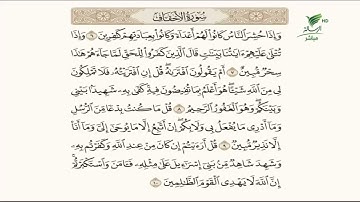 سُورَةُ الأَحْقَافِ
وَإِذَا حُشِرَ النَّاسُ كَانُوا لَهُمْ أَعْدَاءً وَكَانُوا بِعِبَادَتِهِمْ كَافِرِينَ ٦ وَإِذَا
تُتْلَى عَلَيْهِمْ آيَاتُنَا بَيِّنَاتٍ قَالَ الَّذِينَ كَفَرُوا لِلْحَقِّ لَمَّا جَاءَهُمْ هَذَا
سِحْرٌ مُّبِينٌ ٧ أَمْ يَقُولُونَ افْتَرَاهُ قُلْ إِنِ افْتَرَيْتُهُ فَلَا تَمْلِكُونَ
لِي مِنَ اللَّهِ شَيْئًا هُوَ أَعْلَمُ بِمَا تُفِيضُونَ فِيهِ كَفَى بِهِ شَهِيدًا بَيْنِي
وَبَيْنَكُمْ وَهُوَ الْغَفُورُ الرَّحِيمُ ٨ قُلْ مَا كُنتُ بِدْعًا مِّنَ الرُّسُلِ
وَمَا أَدْرِي مَا يُفْعَلُ بِي وَلَا بِكُمْ إِنْ أَتَّبِعُ إِلَّا مَا يُوحَى إِلَيَّ وَمَا أَنَا
إِلَّا نَذِيرٌ مُّبِينٌ ٩ قُلْ أَرَأَيْتُمْ إِن كَانَ مِنْ عِندِ اللَّهِ وَكَفَرْتُم بِهِ
وَشَهِدَ شَاهِدٌ مِّن بَنِي إِسْرَائِيلَ عَلَى مِثْلِهِ فَآمَنَ وَاسْتَكْبَرْتُمْ
إِنَّ اللَّهَ لَا يَهْدِي الْقَوْمَ الظَّالِمِينَ ١٠
HD